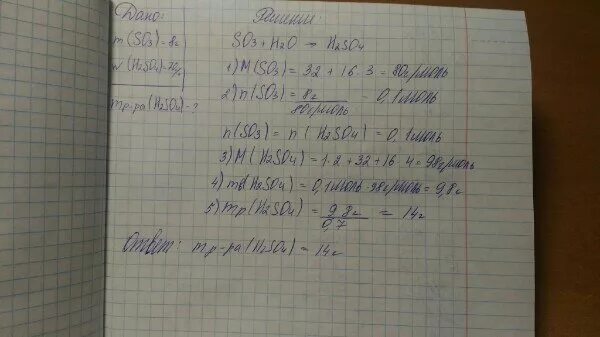 Дано:
m(SO3)=8г
w(H2SO4)=70%
mр-ра(H2SO4)=?
Решение:
SO3+H2O → H2SO4
1) M(SO3)=32+16·3=80г/моль
2) n(SO3)=8г/80г/моль=0,1моль
n(SO3)=n(H2SO4)=0,1моль
3) M(H2SO4)=1·2+32+16·4=98г/моль
4) m(H2SO4)=0,1моль·98г/моль=9,8г
5) mр(H2SO4)=9,8г/0,7=14г
Ответ: mр-ра(H2SO4)=14г